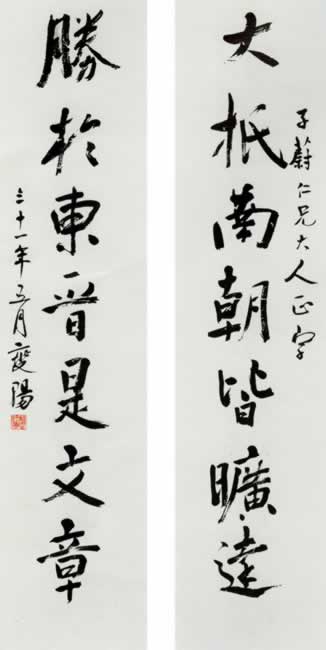 子蔚仁兄大人正字
大抵南朝皆曠達
勝於東晉是文章
三十一年五月陽